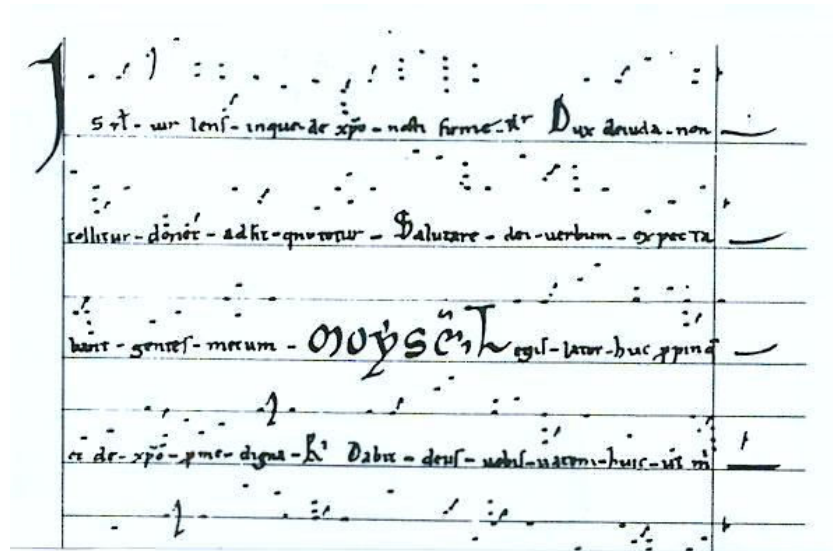 Isrł - uir lenſ - inque - de xp̄o - noſti firme - Rʳ Dux deiuda - non
tollitur - donec - adſit - qui - Salutare - dei - uerbum - expecta
bunt - genteſ - mecum - MOYSES Legiſ - lator - huc ꝓpinq̄
et de - xp̄o - pme - digna - Rˢ Dabit - deuſ - uobiſ - uatem - huic - ut m